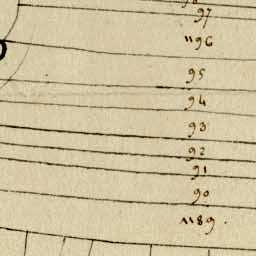 97
1196
95
94
93
92
91
90
1189.